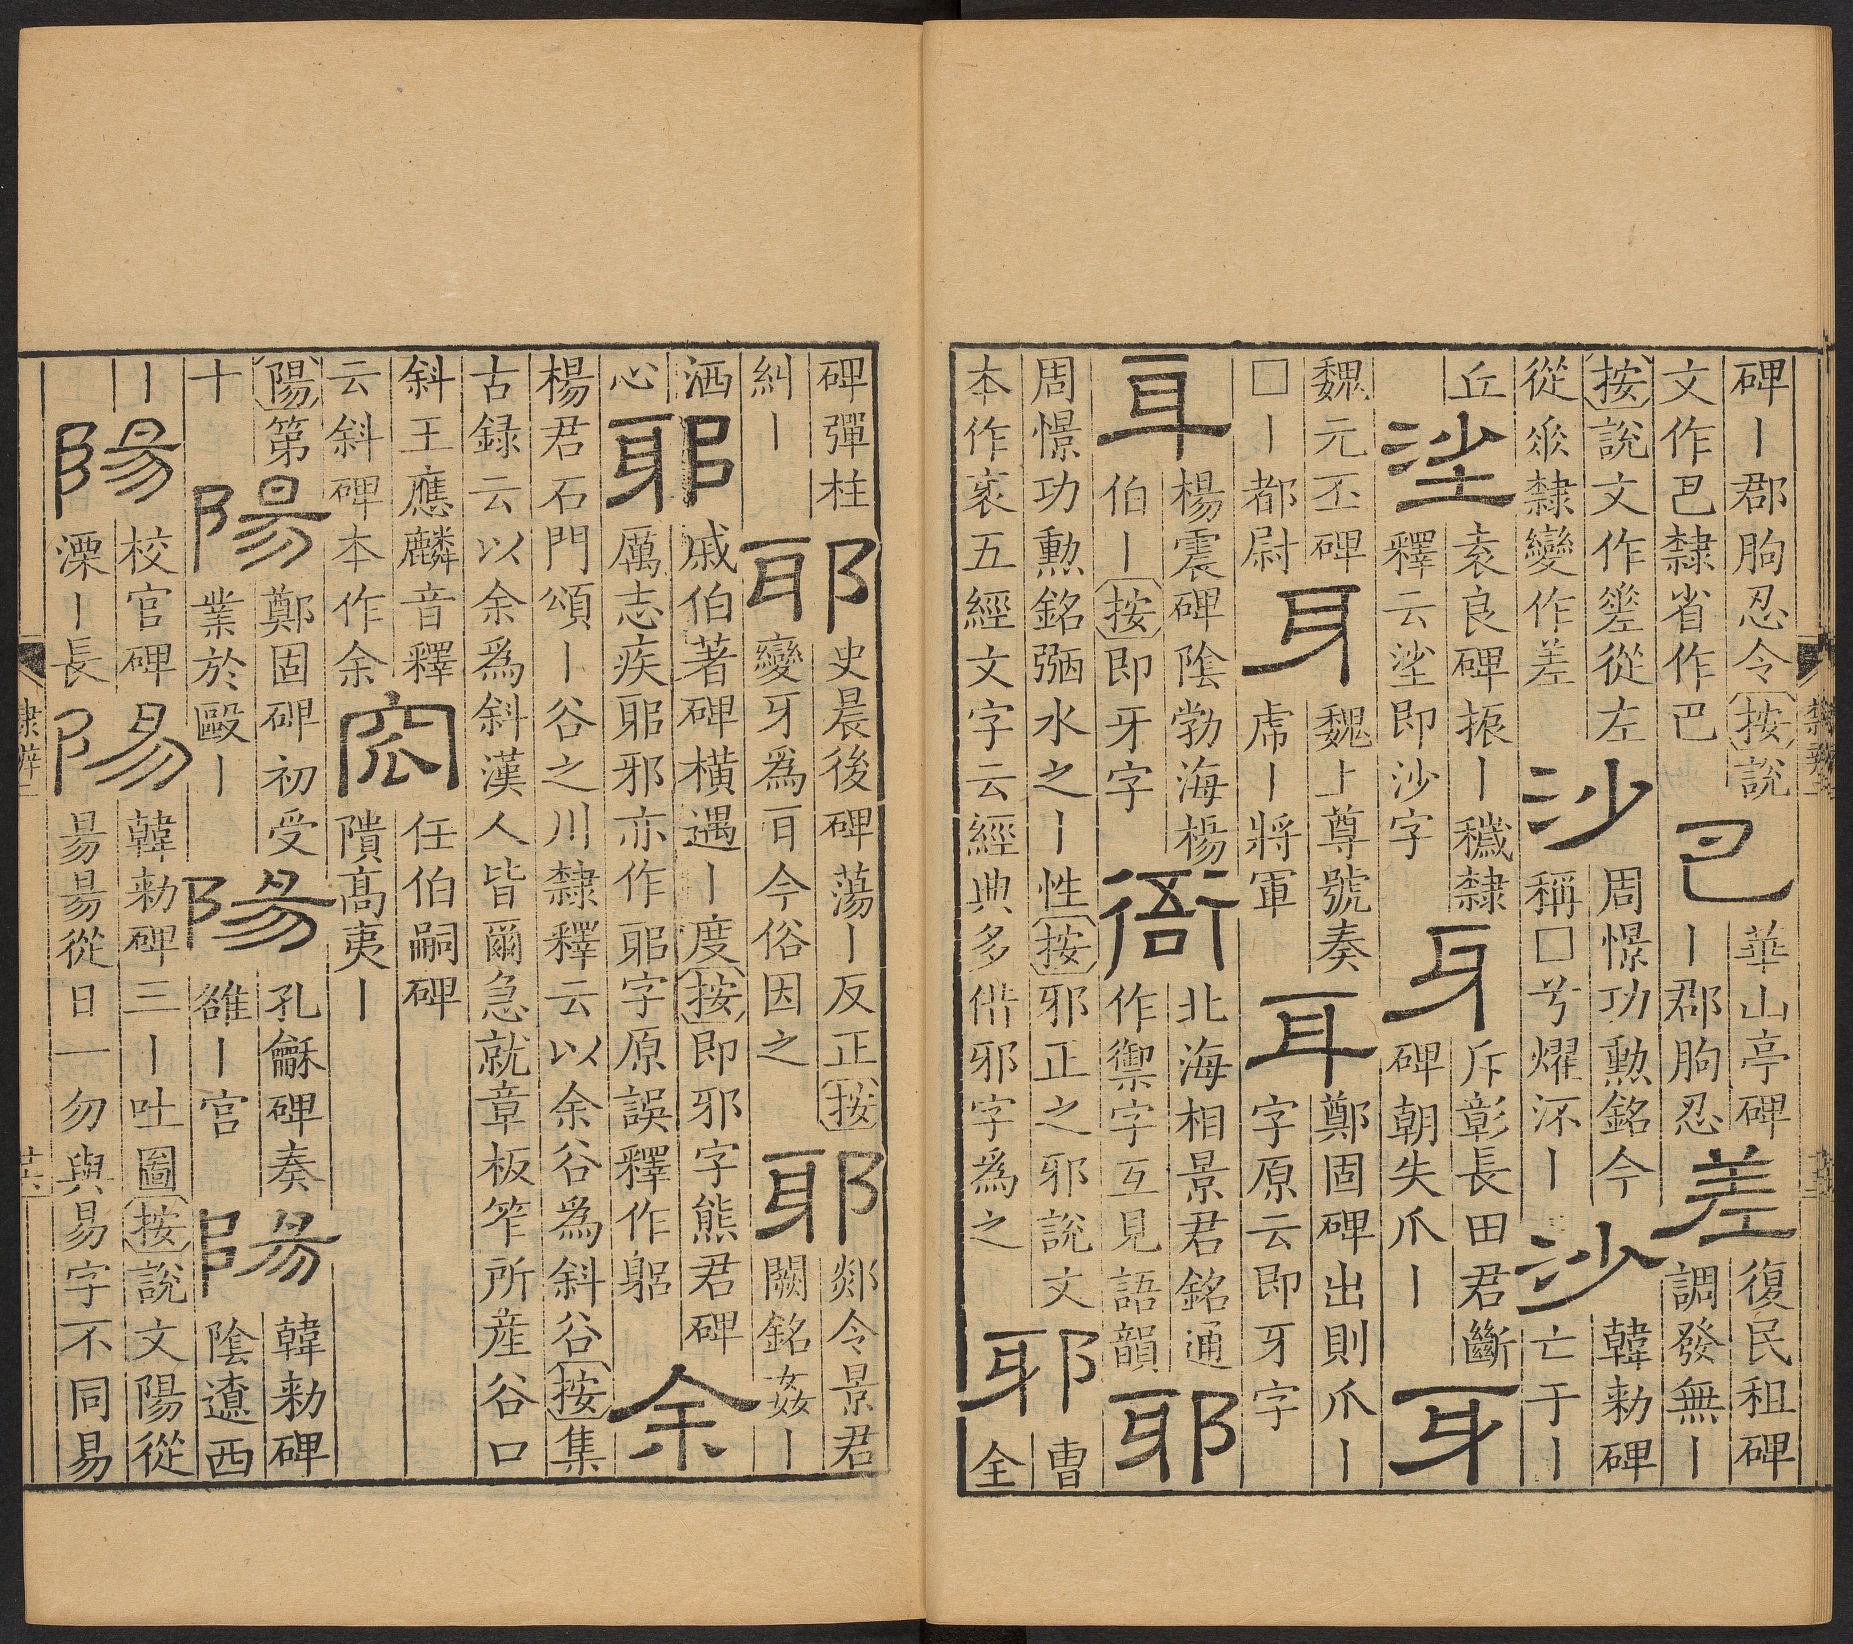 碑丨郡朐忍令按說
文作巴隸省作巴
巴
華山亭碑
丨郡朐忍
差
復民租碑
調發無丨
按說文作𢀩從左
從𠂹隸變作差
沙
周憬功勲銘今
稱□兮燿沠丨
沙
韓勑碑
亡于丨
丘
㘸
袁良碑振丨穢隸
釋云㘸即沙字
牙
斥彰長田君斷
碑朝失爪丨
牙
魏元丕碑
□丨都尉
牙
魏上尊號奏
虎丨將軍
耳
鄭固碑出則爪丨
字原云即牙字
耳
楊震碑陰勃海楊
伯丨按即牙字
衙
北海相景君銘通
作禦字互見語韻
耶
周憬功勲銘弱水之丨性按邪正之邪說文
本作衺五經文字云經典多借邪字為之
耶
曹
全
碑彈柱
糾丨
耶
史晨後碑蕩丨反正按
變牙為耳今俗因之
耶
郯令景君
闕銘姦丨
洒
心
耶
戚伯著碑橫遇丨度按即邪字熊君碑
厲志疾䣀邪亦作䣀字原誤釋作躳
余
楊君石門頌丨谷之川隸釋云以余谷為斜谷按集
古録云以余為斜漢人皆爾急就章板笮所産谷口
斜王應麟音釋
云斜碑本作余
窊
任伯嗣碑
隤高夷丨
陽第
十
陽
鄭固碑初受
業於毆丨
陽
孔龢碑奏
雒丨宫
陽
韓勑碑
陰遼西
丨
陽
校官碑
溧丨長
陽
韓勑碑三丨吐圖按說文陽從
昜昜從日一勿與易字不同易
隸辨